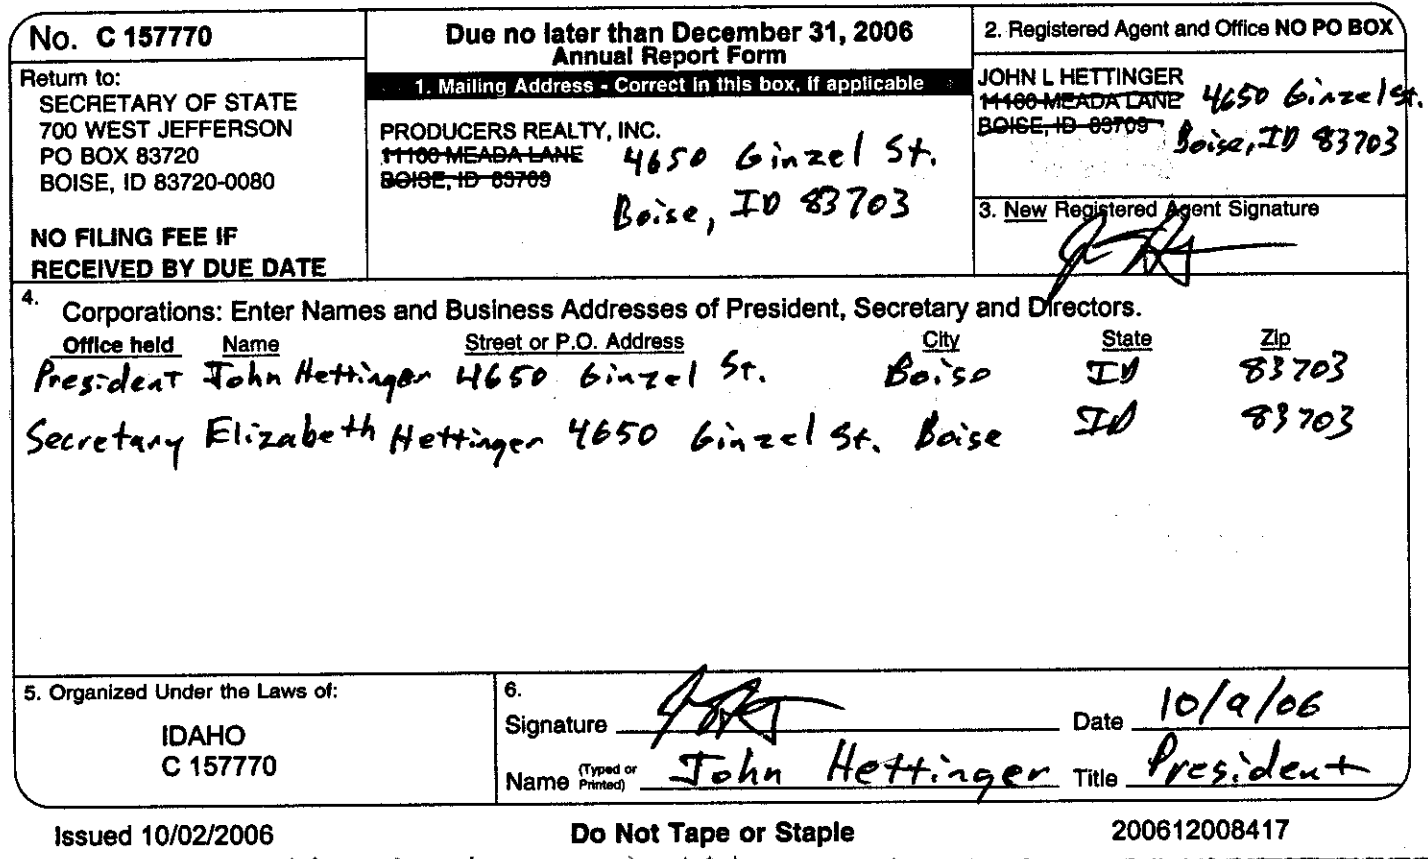 No. C 157770
Return to:
SECRETARY OF STATE
700 WEST JEFFERSON
PO BOX 83720
BOISE, ID 83720-0080
NO FILING FEE IF
RECEIVED BY DUE DATE
Due no later than December 31, 2006
Annual Report Form
1. Mailing Address - Correct in this box, if applicable
PRODUCERS REALTY, INC.
11160 MEADA LANE
BOISE, ID 83709
4650 Ginzel St.
Boise, ID 83703
2. Registered Agent and Office NO PO BOX
JOHN L HETTINGER
11160 MEADA LANE 4650 Ginzel St.
BOISE, ID 83709 Boise, ID 83703
3. New Registered Agent Signature
4. Corporations: Enter Names and Business Addresses of President, Secretary and Directors.
Office held Name Street or P.O. Address City State Zip
President John Hettinger 4650 Ginzel St. Boise ID 83703
Secretary Elizabeth Hettinger 4650 Ginzel St. Boise ID 83703
5. Organized Under the Laws of:
IDAHO
C 157770
6.
Signature Date 10/9/06
Name (Typed or Printed) John Hettinger Title President
Issued 10/02/2006 Do Not Tape or Staple 200612008417